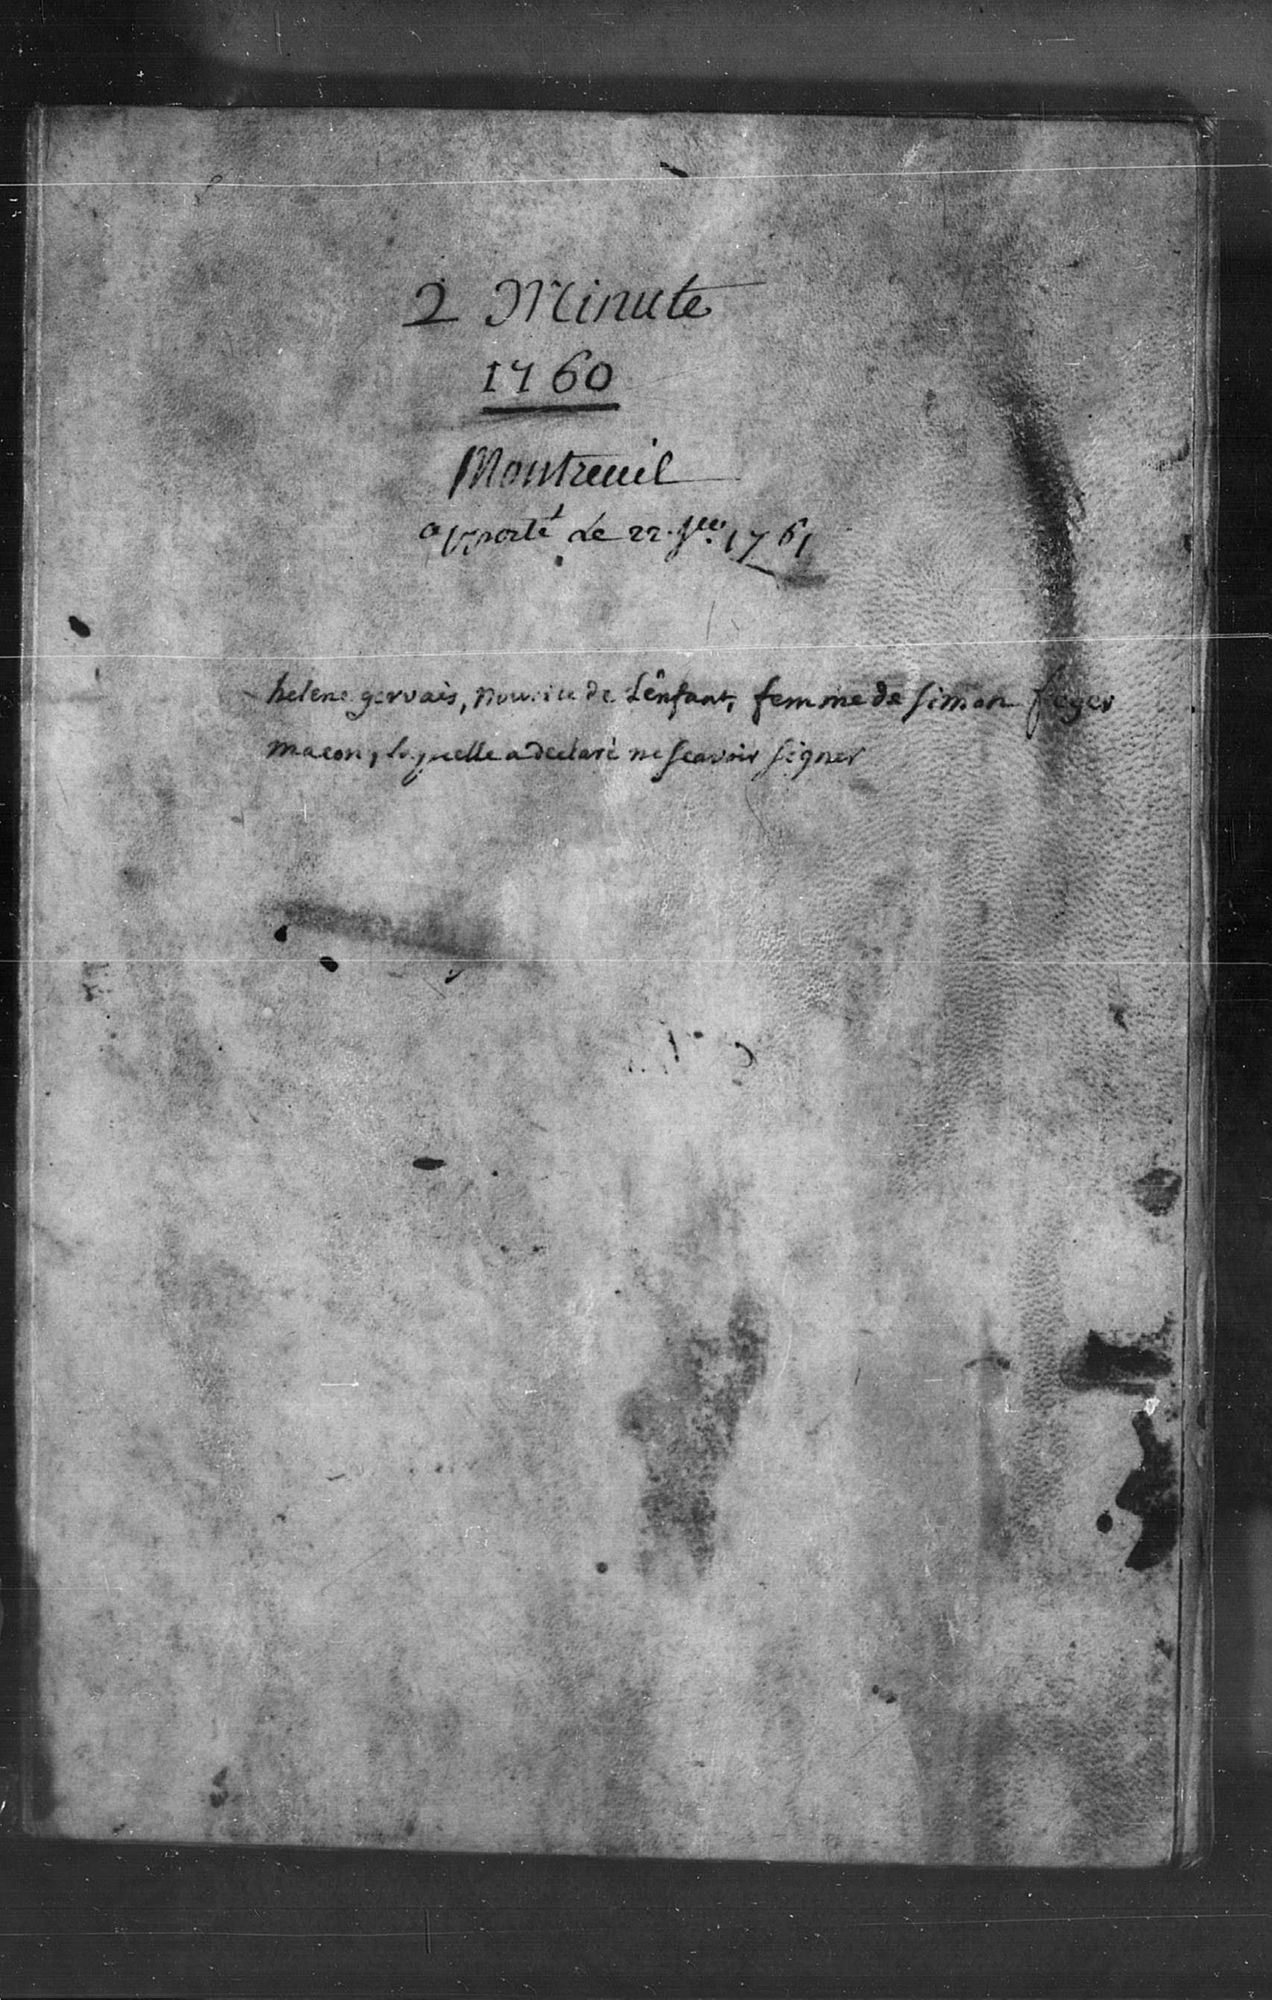 2 Minute
1760
Montreuil
apporté le 22. 1761
helene gervais, nourice de L'enfant, femme de simon feger
macon, laquelle a declaré ne scavoir signer